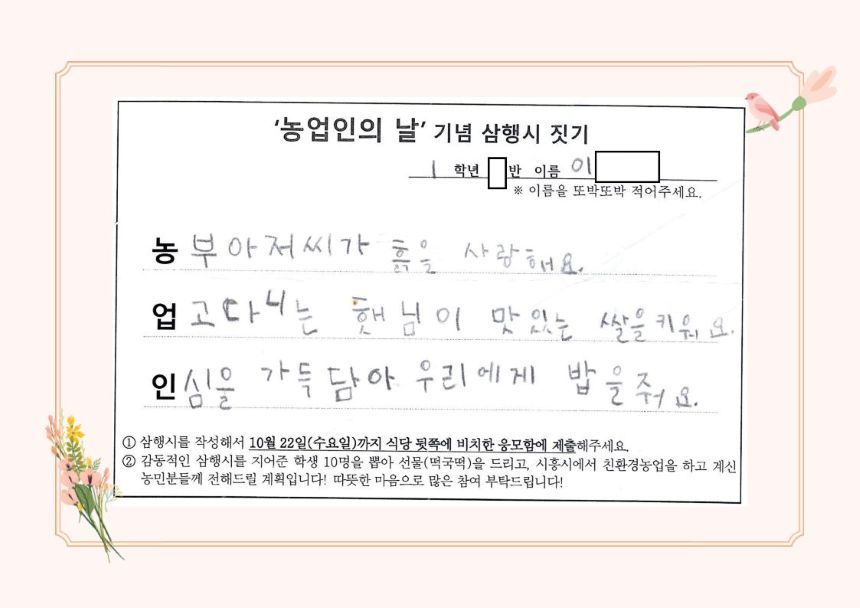 ‘농업인의 날’ 기념 삼행시 짓기
1 학년 반 이름 이
※ 이름을 또박또박 적어주세요.
농부아저씨가 흙을 사랑해요.
업고다니는 햇님이 맛있는 쌀을키워요.
인심을 가득담아 우리에게 밥을줘요.
① 삼행시를 작성해서 10월 22일(수요일)까지 식당 뒷쪽에 비치한 응모함에 제출해주세요.
② 감동적인 삼행시를 지어준 학생 10명을 뽑아 선물(떡국떡)을 드리고, 시흥시에서 친환경농업을 하고 계신
농민분들께 전해드릴 계획입니다! 따뜻한 마음으로 많은 참여 부탁드립니다!